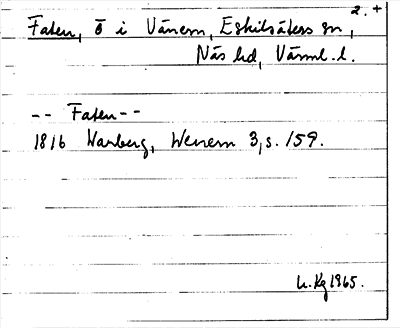 2. +
Faten, ö i Vänern, Eskilsäters sn,
Näs hd, Värml. l.
-- Faten --
1816 Warberg, Wenern 3, s. 159.
L. Kg 1965.